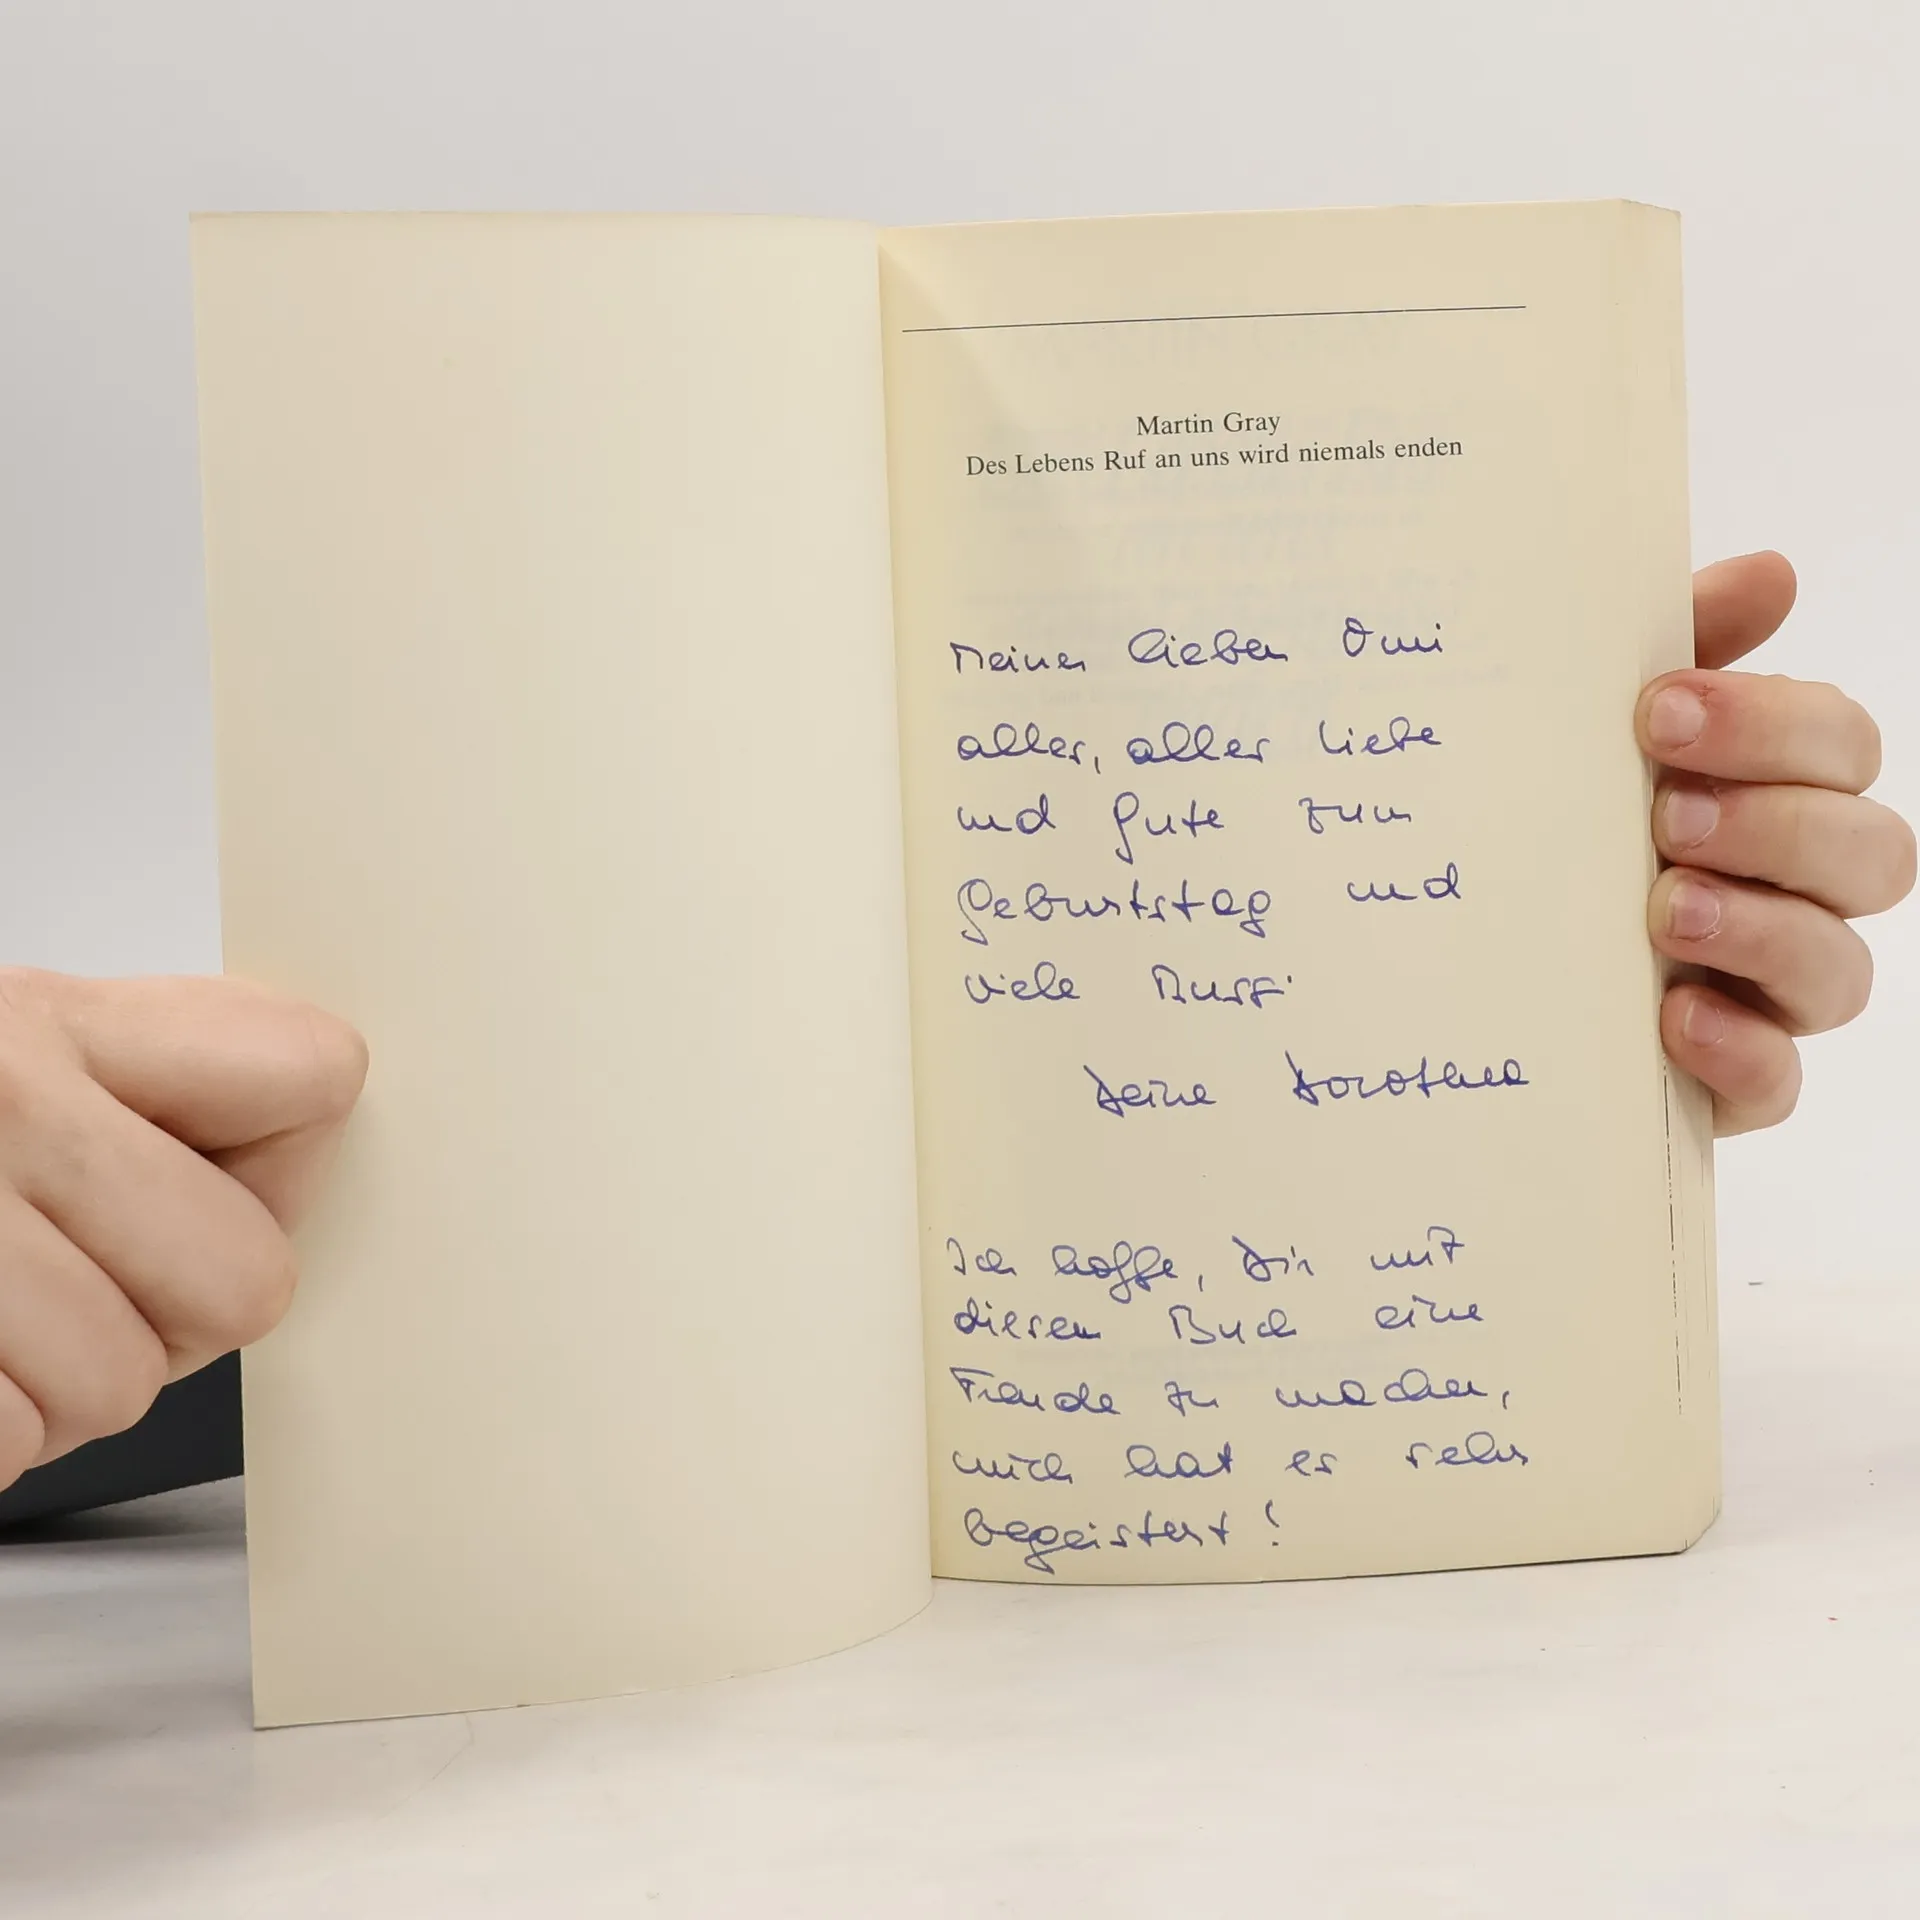 Martin Gray
Des Lebens Ruf an uns wird niemals enden
Meiner lieben Omi
alles, alles Liebe
und Gute zum
Geburtstag und
viele Bussi
Deine Dorothea
Ich hoffe, Dir mit
diesem Buch eine
Freude zu machen,
mich hat es sehr
begeistert!